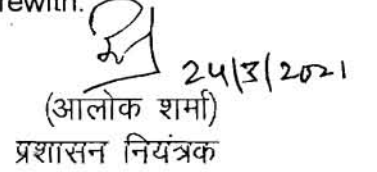 rewith.
24/3/2021
(आलोक शर्मा)
प्रशासन नियंत्रक